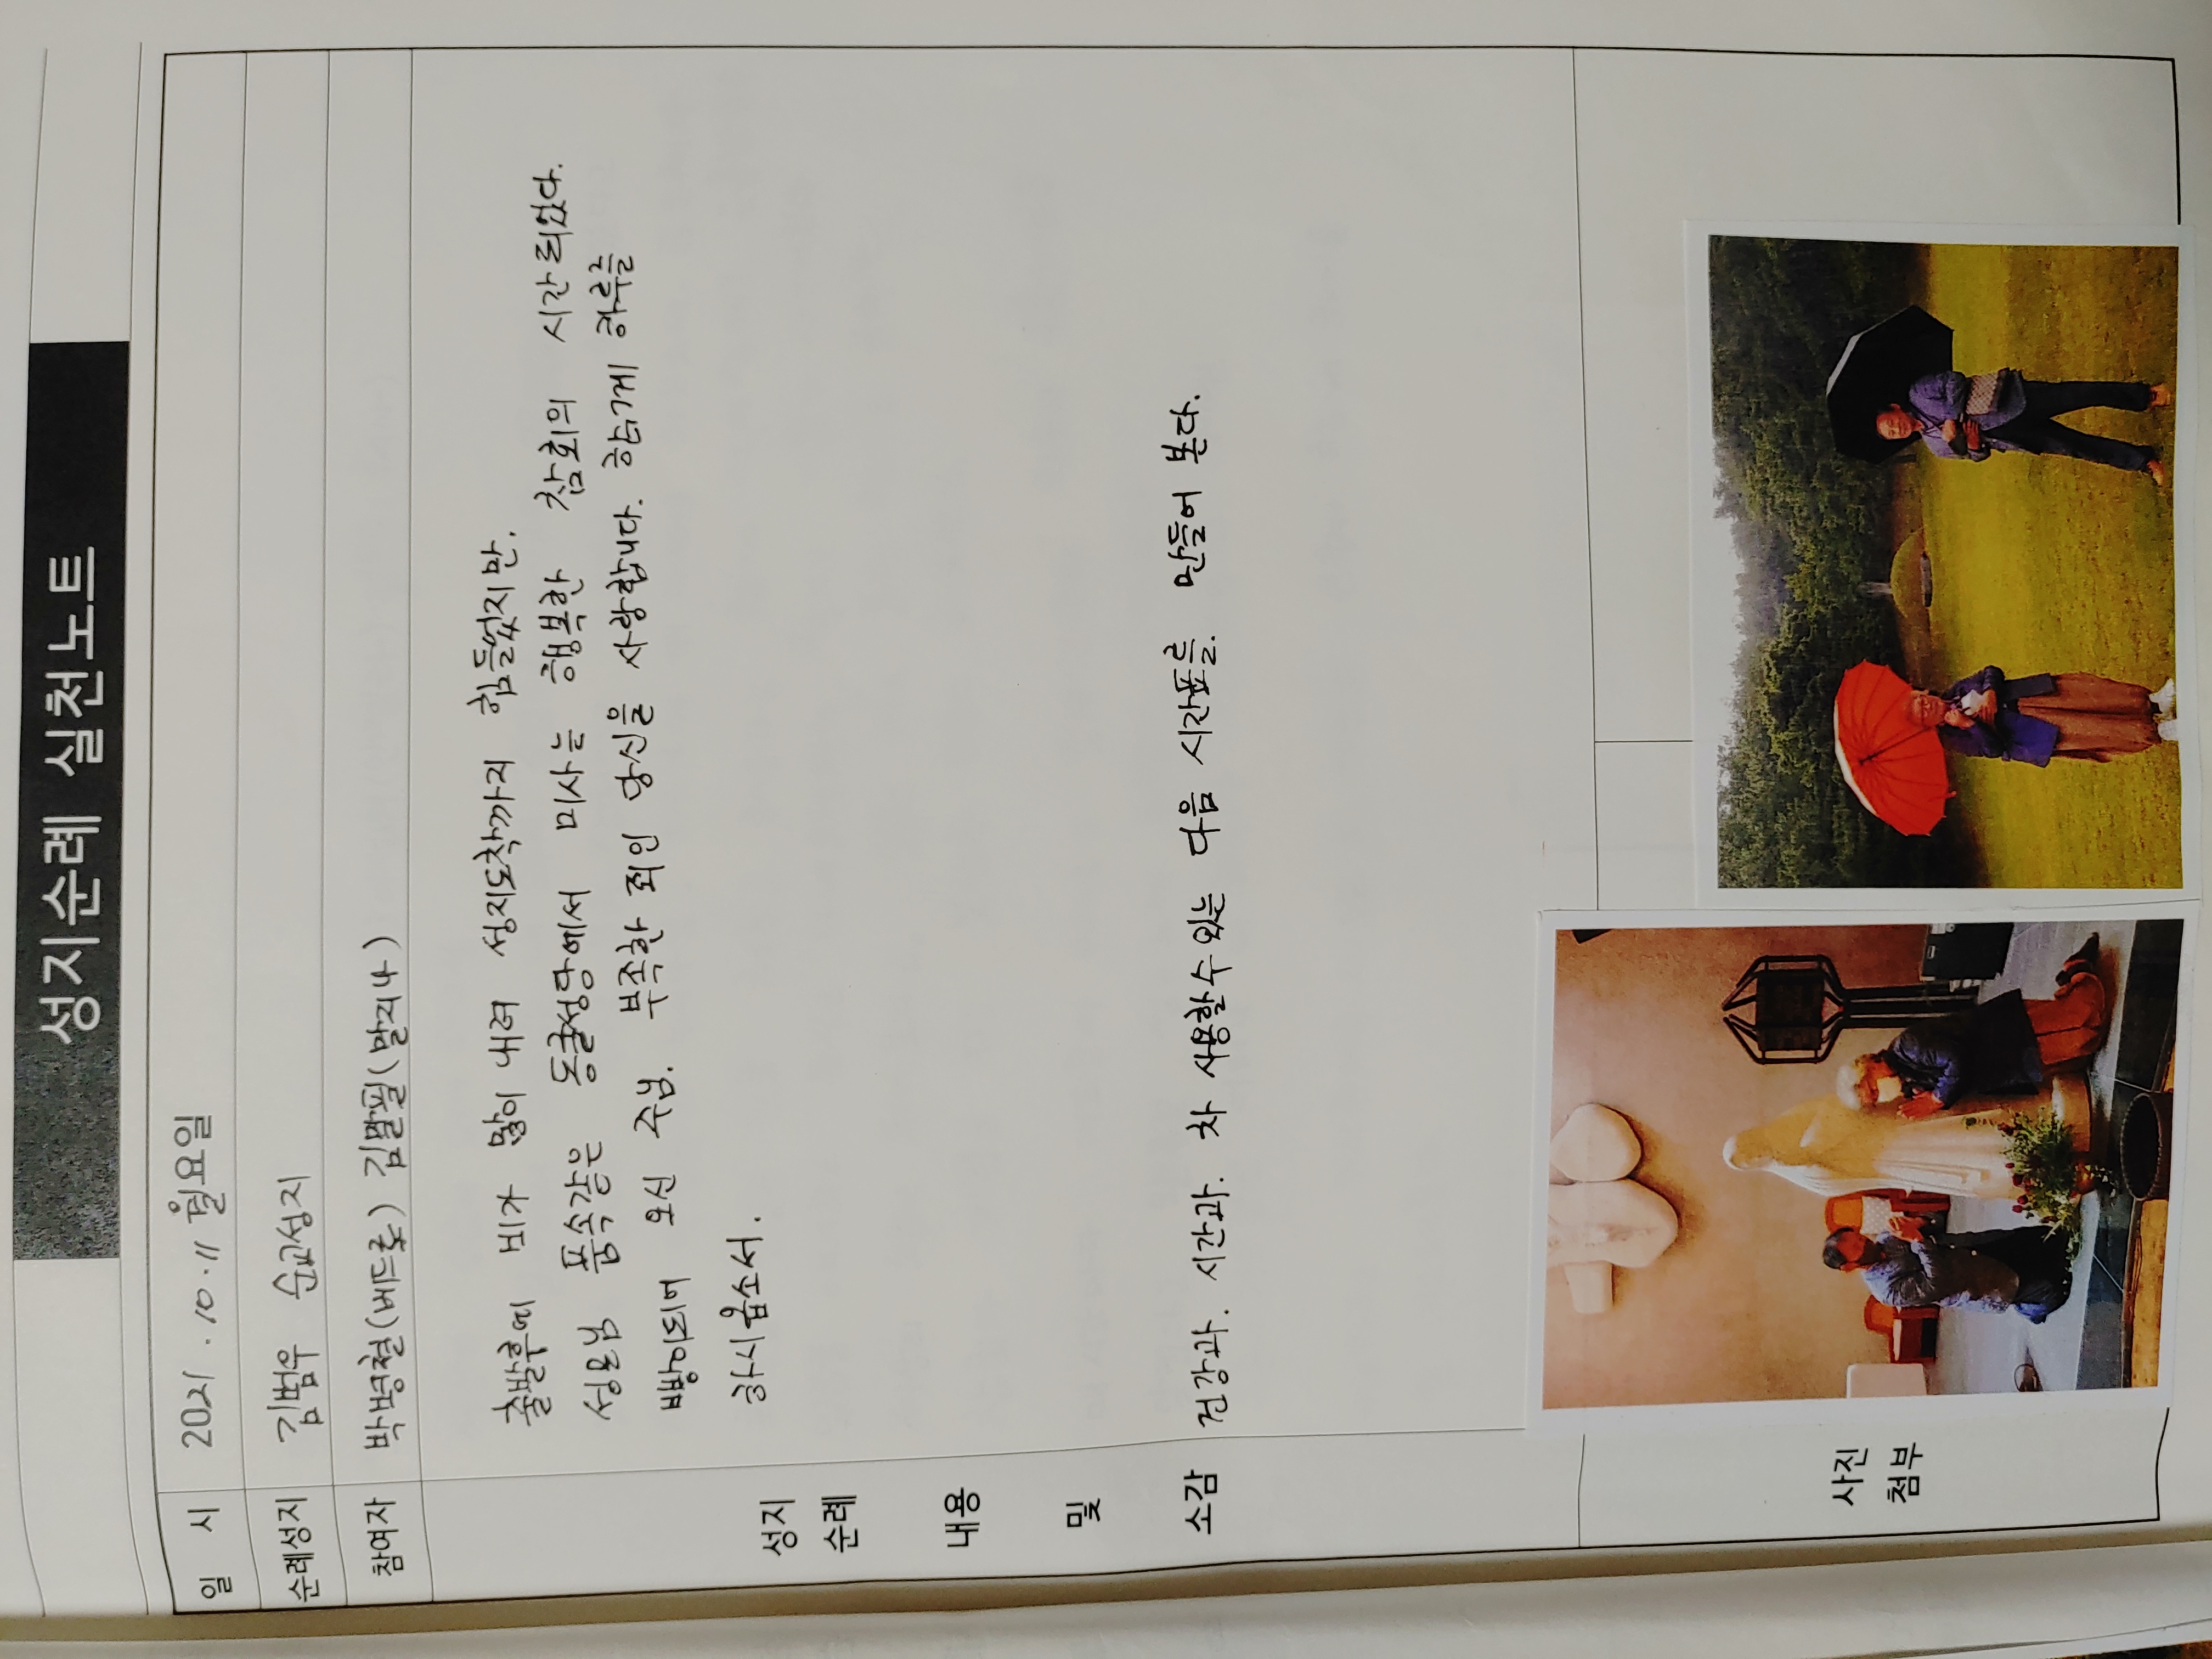 성지순례 실천노트
일 시 2021.10.11 월요일
순례성지 김범우 순교성지
참여자 박병철(베드로) 김말필(말지나)
출발후에 비가 많이 내려 성지도착까지 힘들었지만.
성모님 품속같은 동굴성당에서 미사는 행복한 참회의 시간 되었다.
빵이되어 오신 주님. 부족한 죄인 당신을 사랑합니다. 함께 하루를
하시옵소서.
성지
순례
내용
및
소감
건강과. 시간과. 차 사용할수 있는 다음 시간표를. 만들어 본다.
사진
첨부